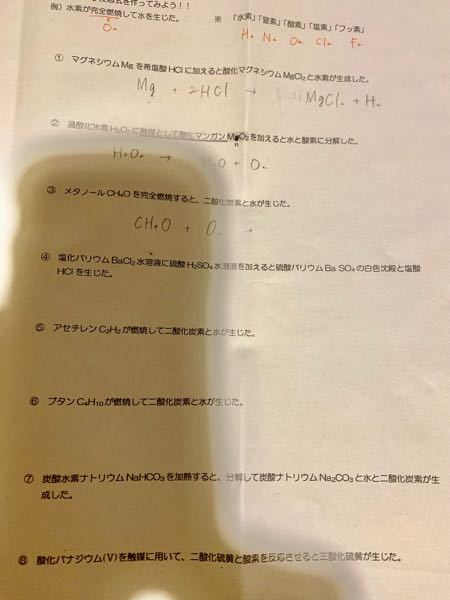 反応式を作ってみよう！！
例）水素が完全燃焼して水を生じた。 ※ 「水素」「窒素」「酸素」「塩素」「フッ素」
O₂ H₂ N₂ O₂ Cl₂ F₂
① マグネシウムMgを希塩酸HClに加えると酸化マグネシウムMgCl₂と水素が生成した。
Mg + 2HCl → MgCl₂ + H₂
② 過酸化水素H₂O₂に触媒として酸化マンガンMnO₂を加えると水と酸素に分解した。
H₂O₂ → H₂O + O₂
③ メタノールCH₄Oを完全燃焼すると、二酸化炭素と水が生じた。
CH₄O + O₂ →
④ 塩化バリウムBaCl₂水溶液に硫酸H₂SO₄水溶液を加えると硫酸バリウムBa SO₄の白色沈殿と塩酸
HClを生じた。
⑤ アセチレンC₂H₂が燃焼して二酸化炭素と水が生じた。
⑥ ブタンC₄H₁₀が燃焼して二酸化炭素と水が生じた。
⑦ 炭酸水素ナトリウムNaHCO₃を加熱すると、分解して炭酸ナトリウムNa₂CO₃と水と二酸化炭素が生
成した。
⑧ 酸化バナジウム(V)を触媒に用いて、二酸化硫黄と酸素を反応させると三酸化硫黄が生じた。